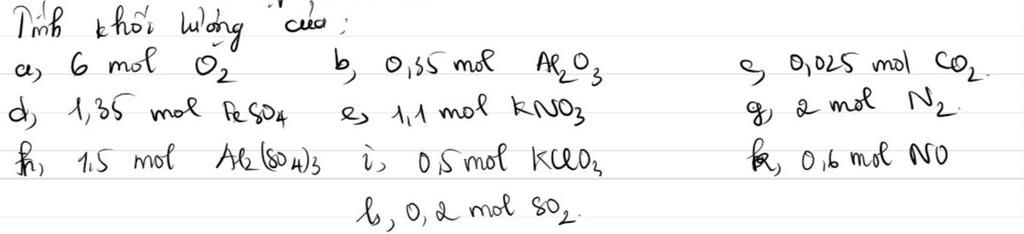 Tính khối lượng của:
a, 6 mol O₂ b, 0,35 mol Al₂O₃ c, 0,025 mol CO₂.
d, 1,35 mol FeSO₄ e, 1,1 mol KNO₃ g, 2 mol N₂.
h, 1,5 mol Al₂(SO₄)₃ i, 0,5 mol KClO₃ k, 0,6 mol NO
l, 0,2 mol SO₂.